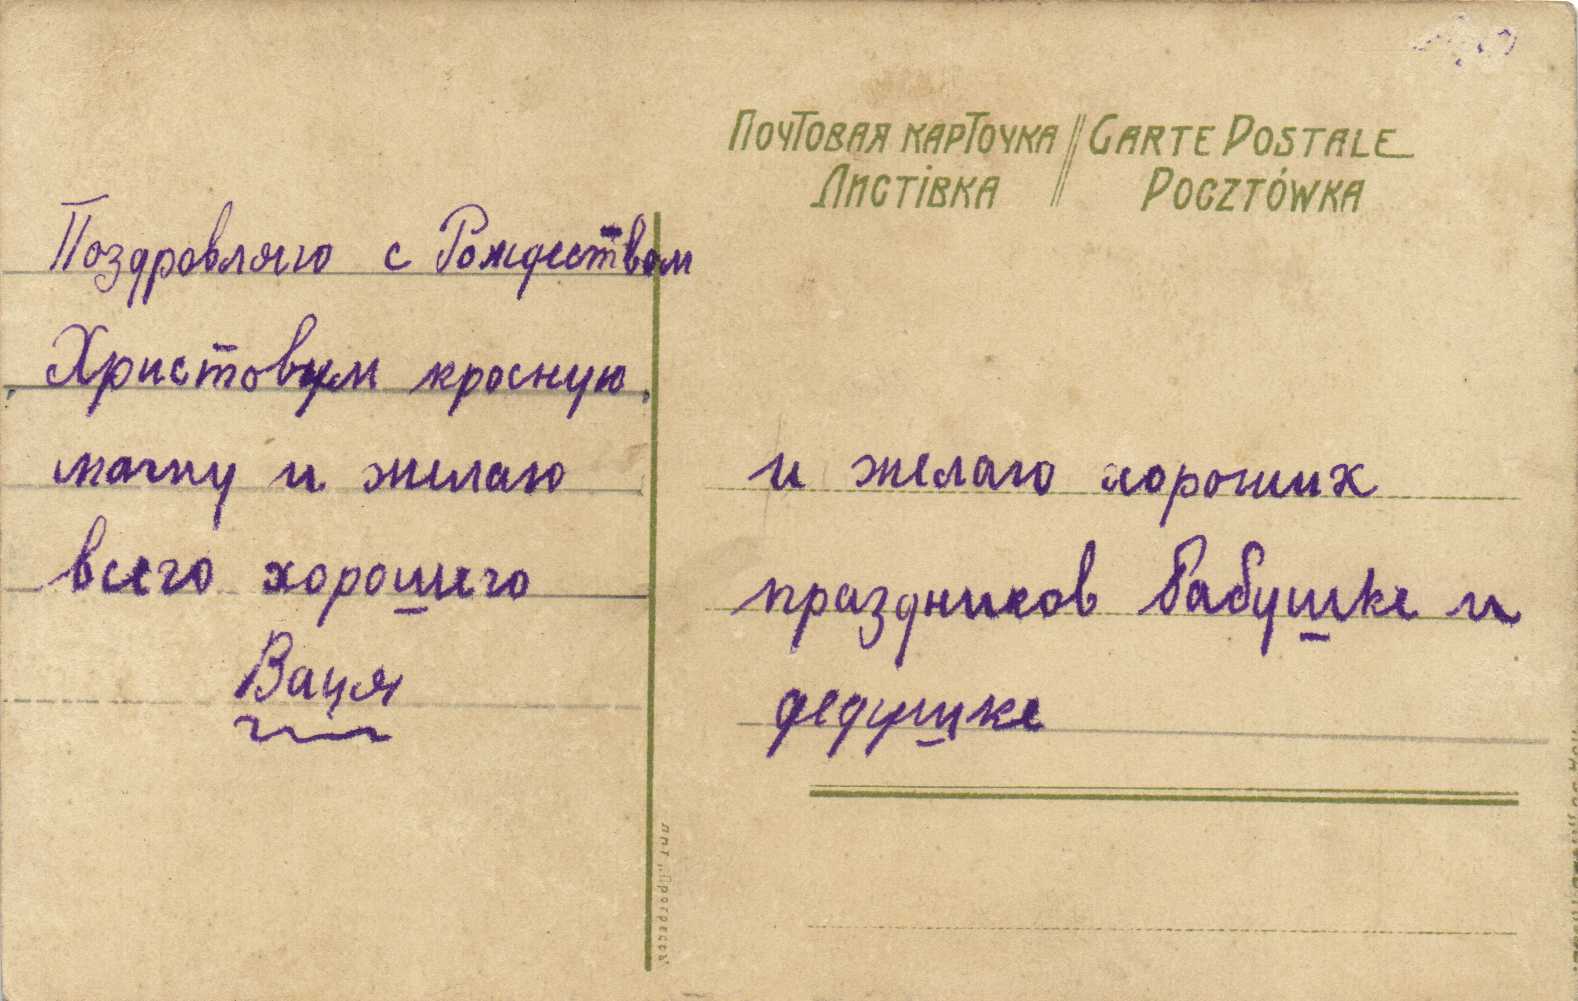 Почтовая карточка Carte Postale
Листівка Pocztówka
Поздровляю с Рождеством
Христовум кросную
мамку и желаю
всего хорошего
Ваця
и желаю хороших
праздников бабушке и
дедушке